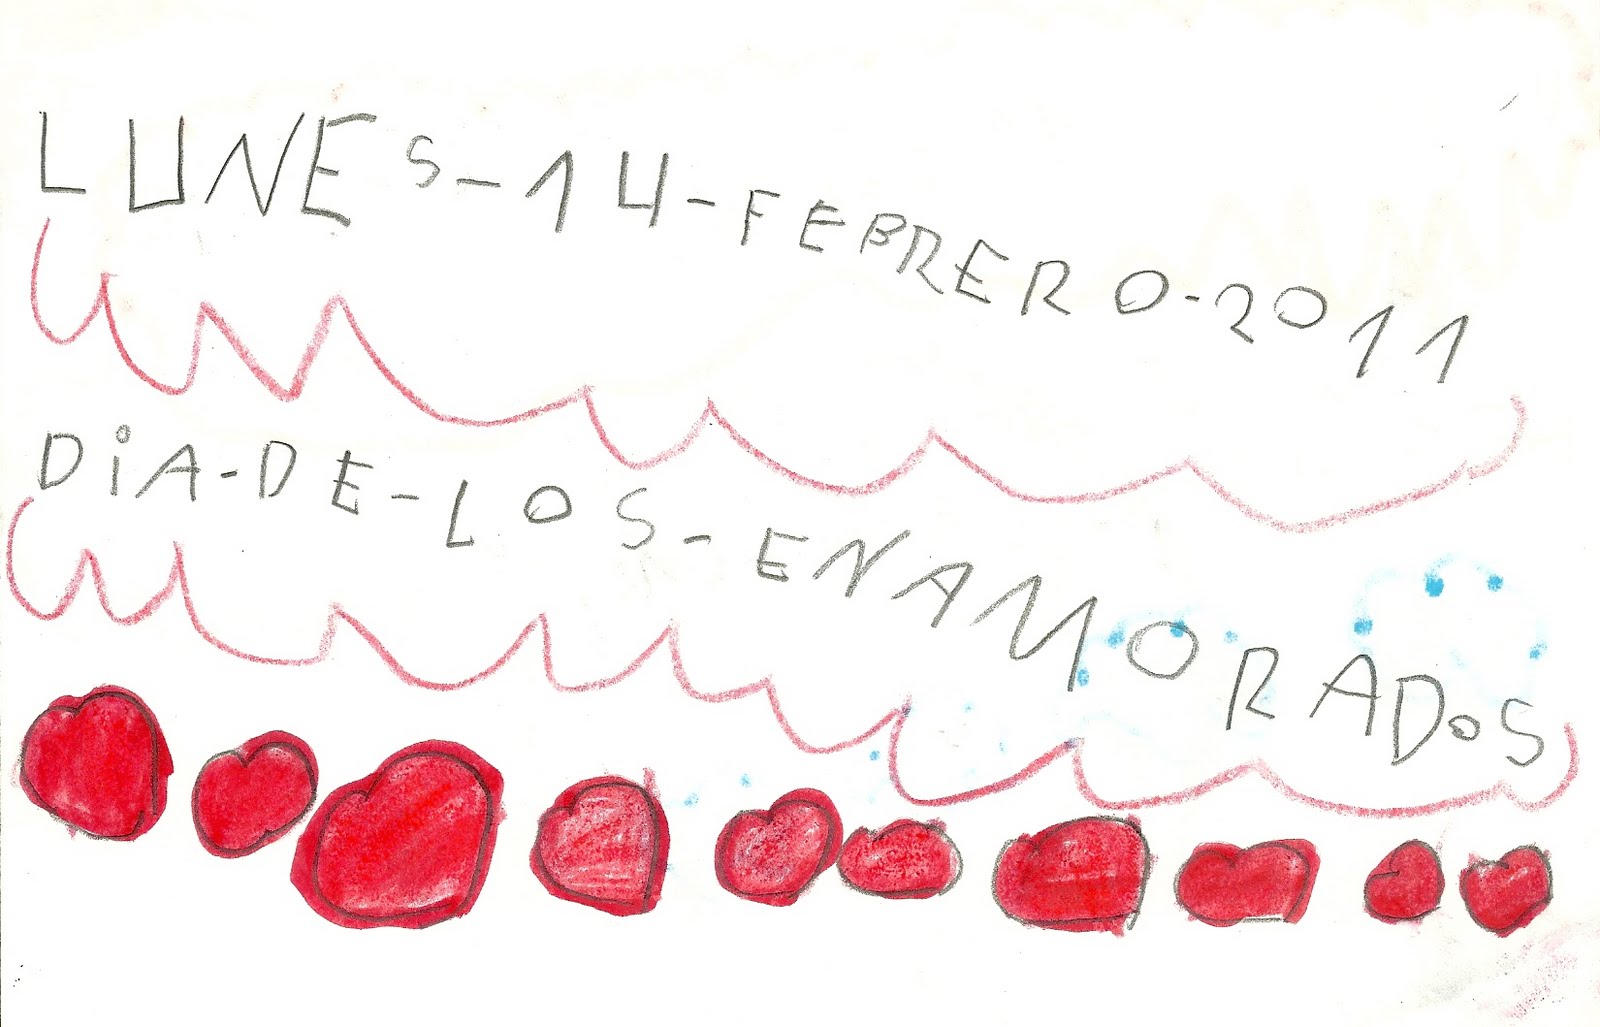 LUNES-14-FEBRERO-2011
DiA-DE-LOS-ENAMORADOS